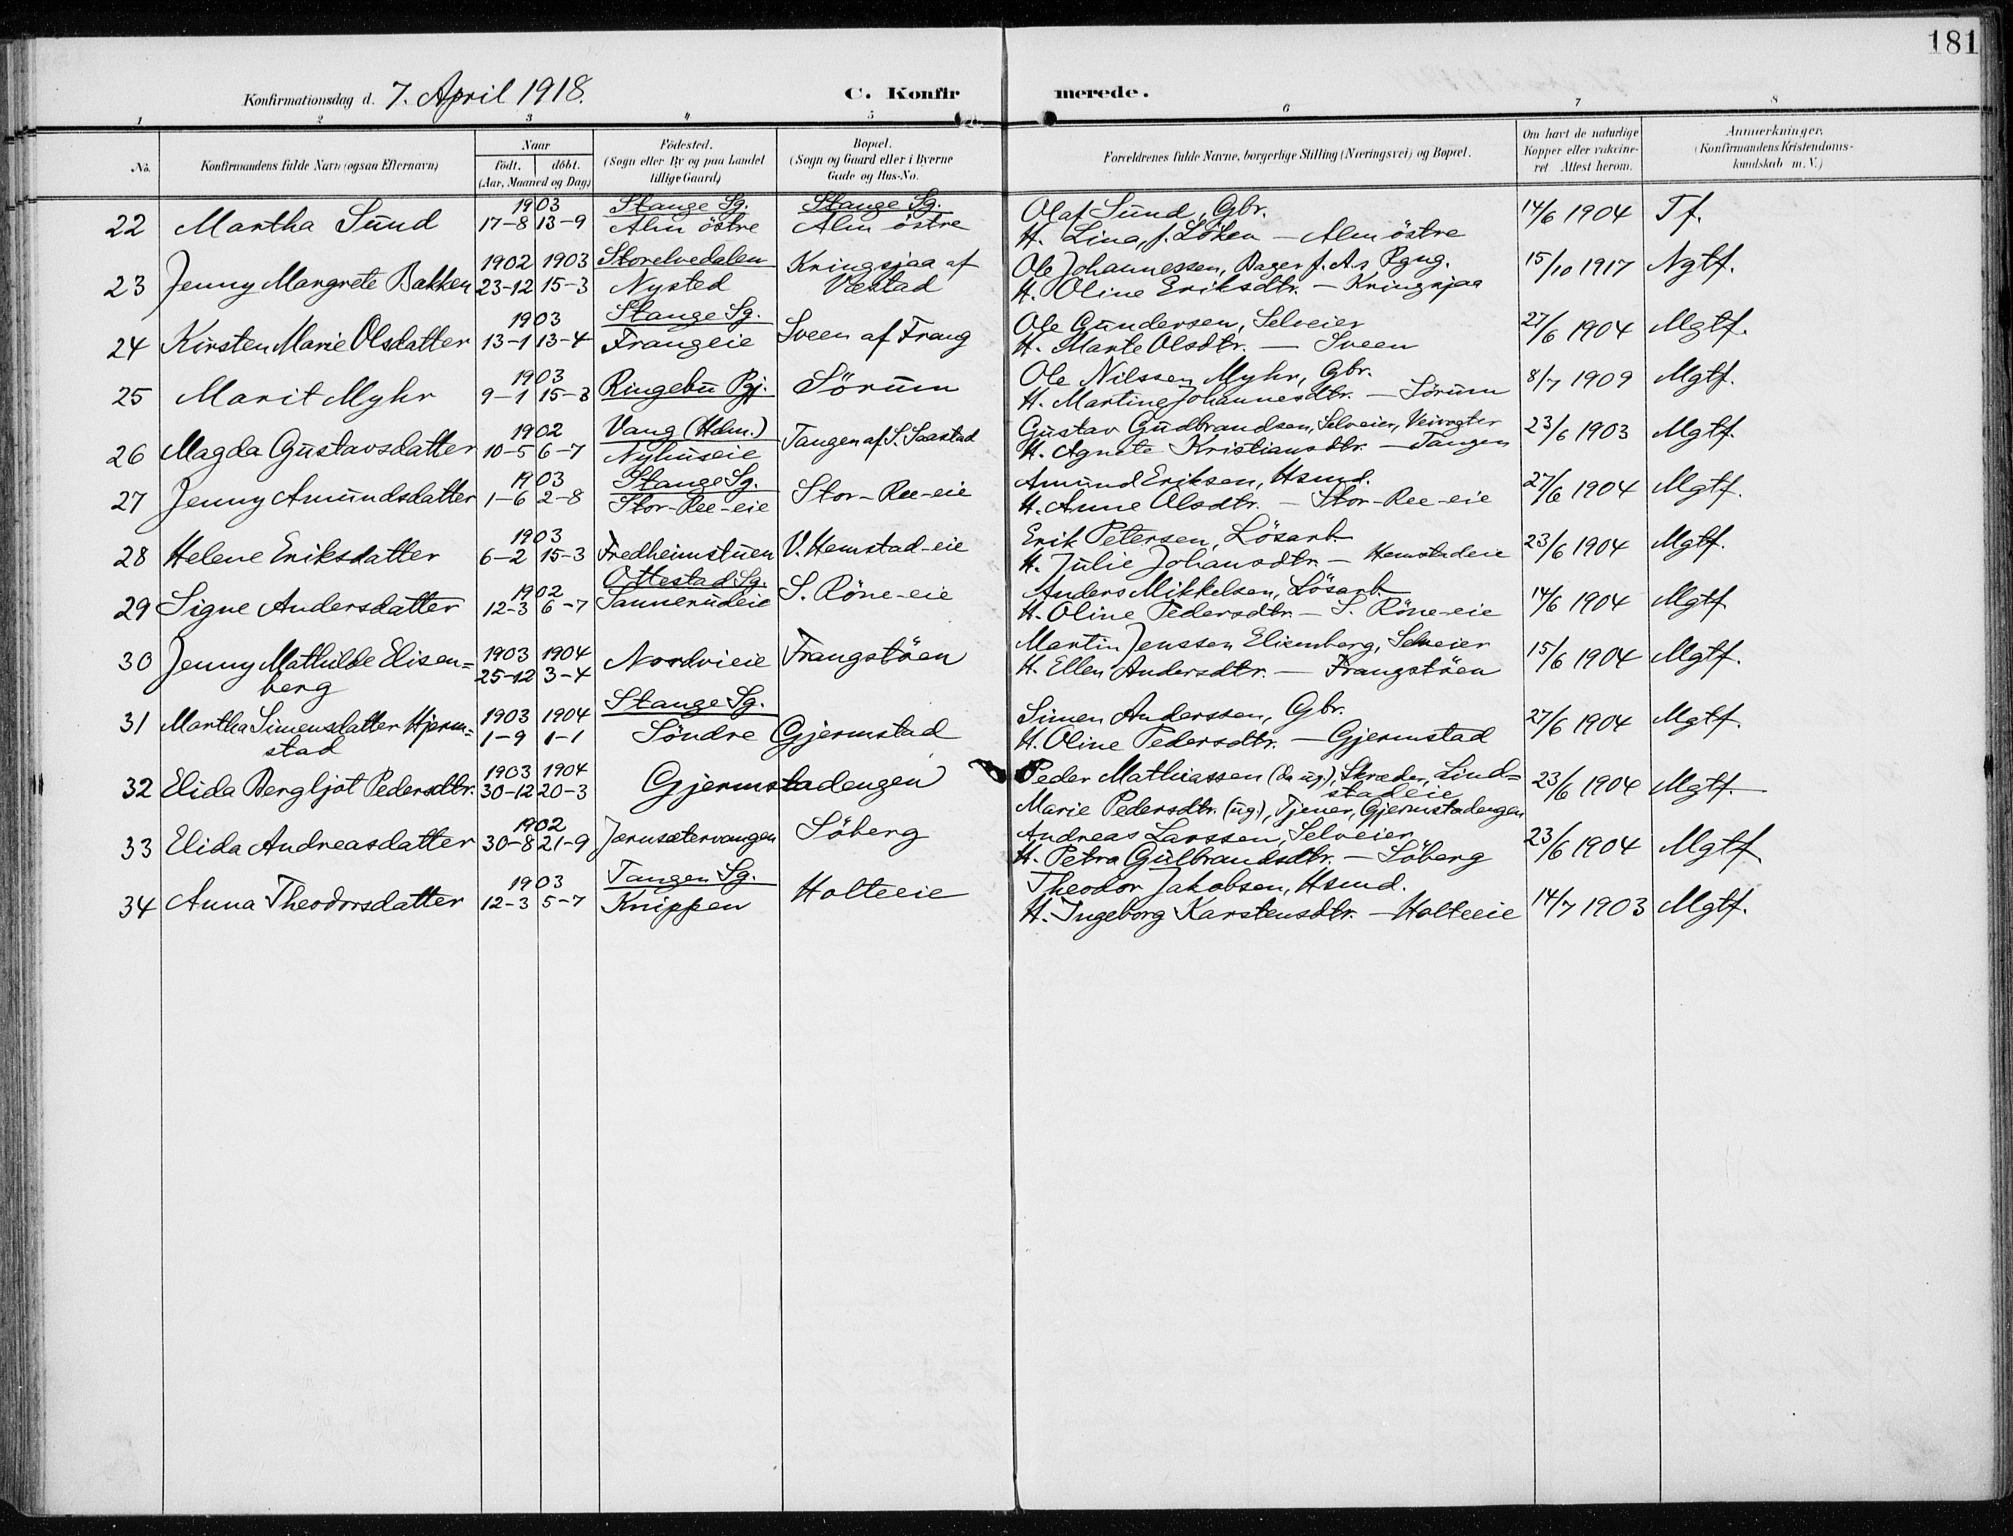 181
Konfirmationsdag d. 7. April 1918. C. Konfirmerede.
1 2 3 4 5 6 7 8
No. Konfirmandens fulde Navn (ogsaa Efternavn) Naar født. døbt. (Aar, Maaned og Dag) Fødested. (Sogn eller By og paa Landet tillige Gaard) Bopæl. (Sogn og Gaard eller i Byerne Gade og Hus-No. Forældrenes fulde Navne, borgerlige Stilling (Næringsvei) og Bopæl. Om havt de naturlige Kopper eller vakcineret Attest herom. Anmærkninger. (Konfirmandens Kristendomskundskab m. V.)
22 Martha Sund 1903 17-8 13-9 Stange Sg. Alm östre Stange Sg. Alm östre Olaf Sund, Gbr. 14/6 1904 Tf.
H. Lina, f. Löken — Alm östre
23 Jenny Margrete Bakken 1902 23-12 1903 15-3 Storelvedalen Nysted Kringsjaa af Væstad Ole Johannessen, Bager f. A.s Rgng. 15/10 1917 Ngtf.
H. Oline Eriksdtr. — Kringsjaa
24 Kirsten Marie Olsdatter 1903 13-1 13-4 Stange Sg. Frangeie Sveen af Frang Ole Gundersen, Selveier 27/6 1904 Mgtf.
H. Marte Olsdtr. — Sveen
25 Marit Myhr 1903 9-1 15-3 Ringebu Pgj. Sörum Ole Nilssen Myhr, Gbr. 8/7 1909 Mgtf.
H. Martine Johannesdtr. — Sörum
26 Magda Gustavsdatter 1902 10-5 6-7 Vang (Hdm.) Nyhuseie Tangen af S. Saastad Gustav Gudbrandsen, Selveier, Veivogter 23/6 1903 Mgtf.
H. Agnete Kristiansdtr. — Tangen
27 Jenny Amundsdatter 1903 1-6 2-8 Stange Sg. Stor-Ree-eie Stor-Ree-eie Amund Eriksen, Hsmd. 27/6 1904 Mgtf.
H. Anne Olsdtr. — Stor-Ree-eie
28 Helene Eriksdatter 1903 6-2 15-3 Fredheimstuen V. Hemstad-eie Erik Petersen, Lösarb. 23/6 1904 Mgtf.
H. Julie Johansdtr. — Hemstadeie
29 Signe Andersdatter 1902 12-3 6-7 Ottestad Sg. Sannerudeie S. Röne-eie Anders Mikkelsen, Lösarb. 14/6 1904 Mgtf
H. Oline Pedersdtr. — S. Röne-eie
30 Jenny Mathilde Elisenberg 1903 25-12 1904 3-4 Nordvieie Frangstöen Martin Jenssen Elisenberg, Selveier 15/6 1904 Mgtf.
H. Ellen Andersdtr. — Frangstöen
31 Martha Simensdatter Hjermstad 1903 1-9 1904 1-1 Stange Sg. Söndre Gjermstad Simen Anderssen, Gbr. 27/6 1904 Mgtf.
H. Oline Pedersdtr. — Gjermstad
32 Elida Bergljot Pedersdtr. 1903 30-12 1904 20-3 Gjermstadengen Peder Mathiassen (da ug.), Skræder, Lindstadeie 23/6 1904 Mgtf.
Marie Pedersdtr. (ug.), Tjener, Gjermstadengen
33 Elida Andreasdatter 1902 30-8 21-9 Jerusætervangen Söberg Andreas Larssen, Selveier 23/6 1904 Mgtf
H. Petra Gulbrandsdtr. — Söberg
34 Anna Theodorsdatter 1903 12-3 5-7 Tangen Sg. Knippen Holteeie Theodor Jakobsen, Hsmd. 14/7 1903 Mgtf.
H. Ingeborg Karstensdtr. — Holteeie